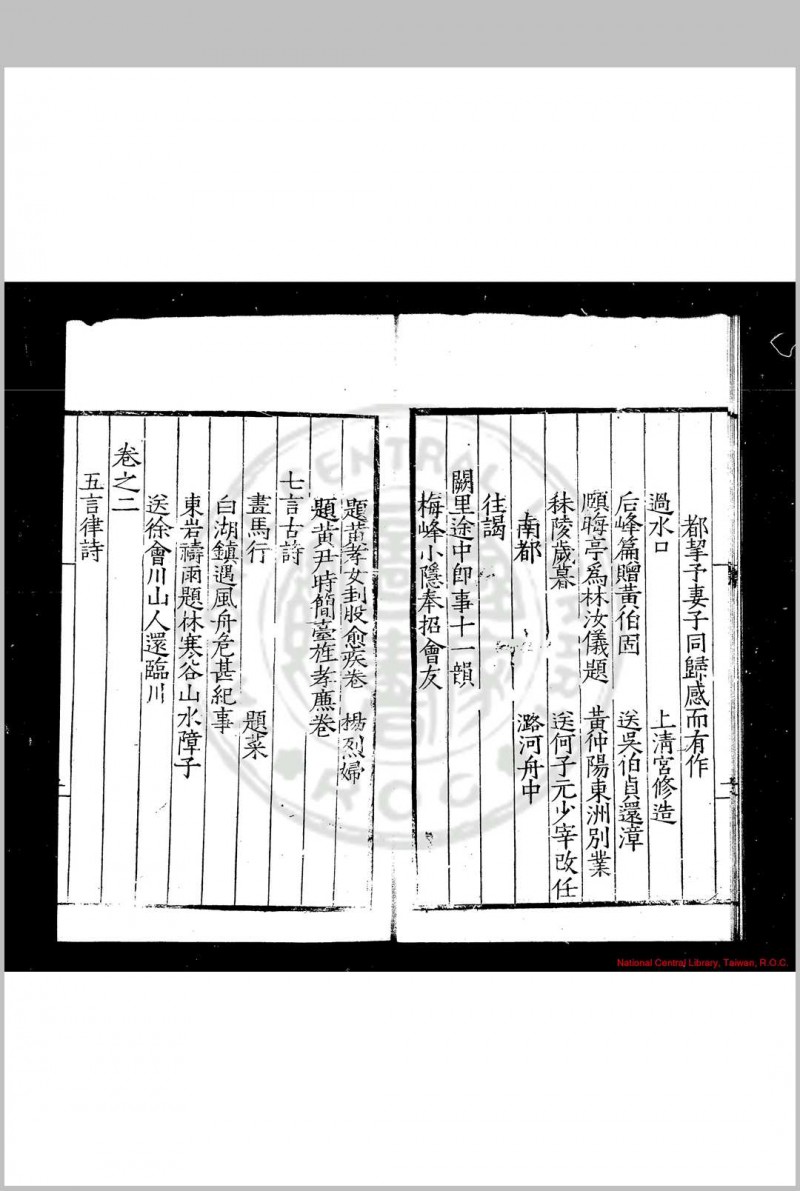 都挈予妻子同歸感而有作
過水口 上清宮修造
后峰篇贈黃伯固 送吳伯貞還漳
頤晦亭爲林汝儀題 黃仲陽東洲別業
秣陵歲暮 送何子元少宰改任
南都 潞河舟中
往謁
闕里途中即事十一韻
梅峰小隱奉招會友
題黃孝女刲股愈疾卷 楊烈婦
題黃尹時簡臺旌孝廉卷
七言古詩
畫馬行 題菜
白湖鎮遇風舟危甚紀事
東岩禱雨題休寒谷山水障子
送徐會川山人還臨川
卷之二
五言律詩
NATIONAL CENTRAL LIBRARY
R.O.C.
National Central Library, Taiwan, R.O.C.